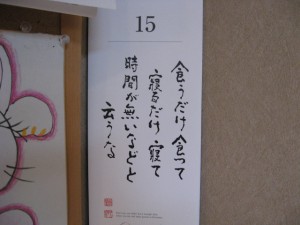 15
食うだけ食って
寝るだけ寝て
時間が無いなどと
云うな